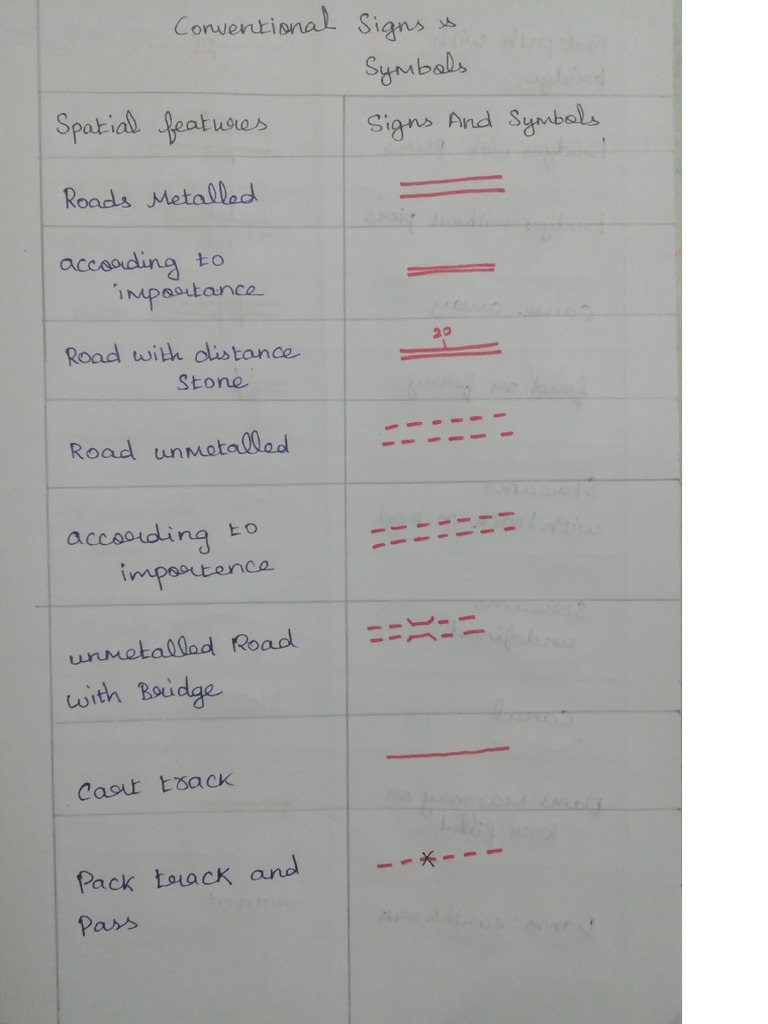 Conventional Signs &
Symbols
Spatial features
Signs And Symbols
Roads Metalled
according to
importance
Road with distance
Stone
20
Road unmetalled
according to
importence
unmetalled Road
with Bridge
Cart track
Pack track and
Pass